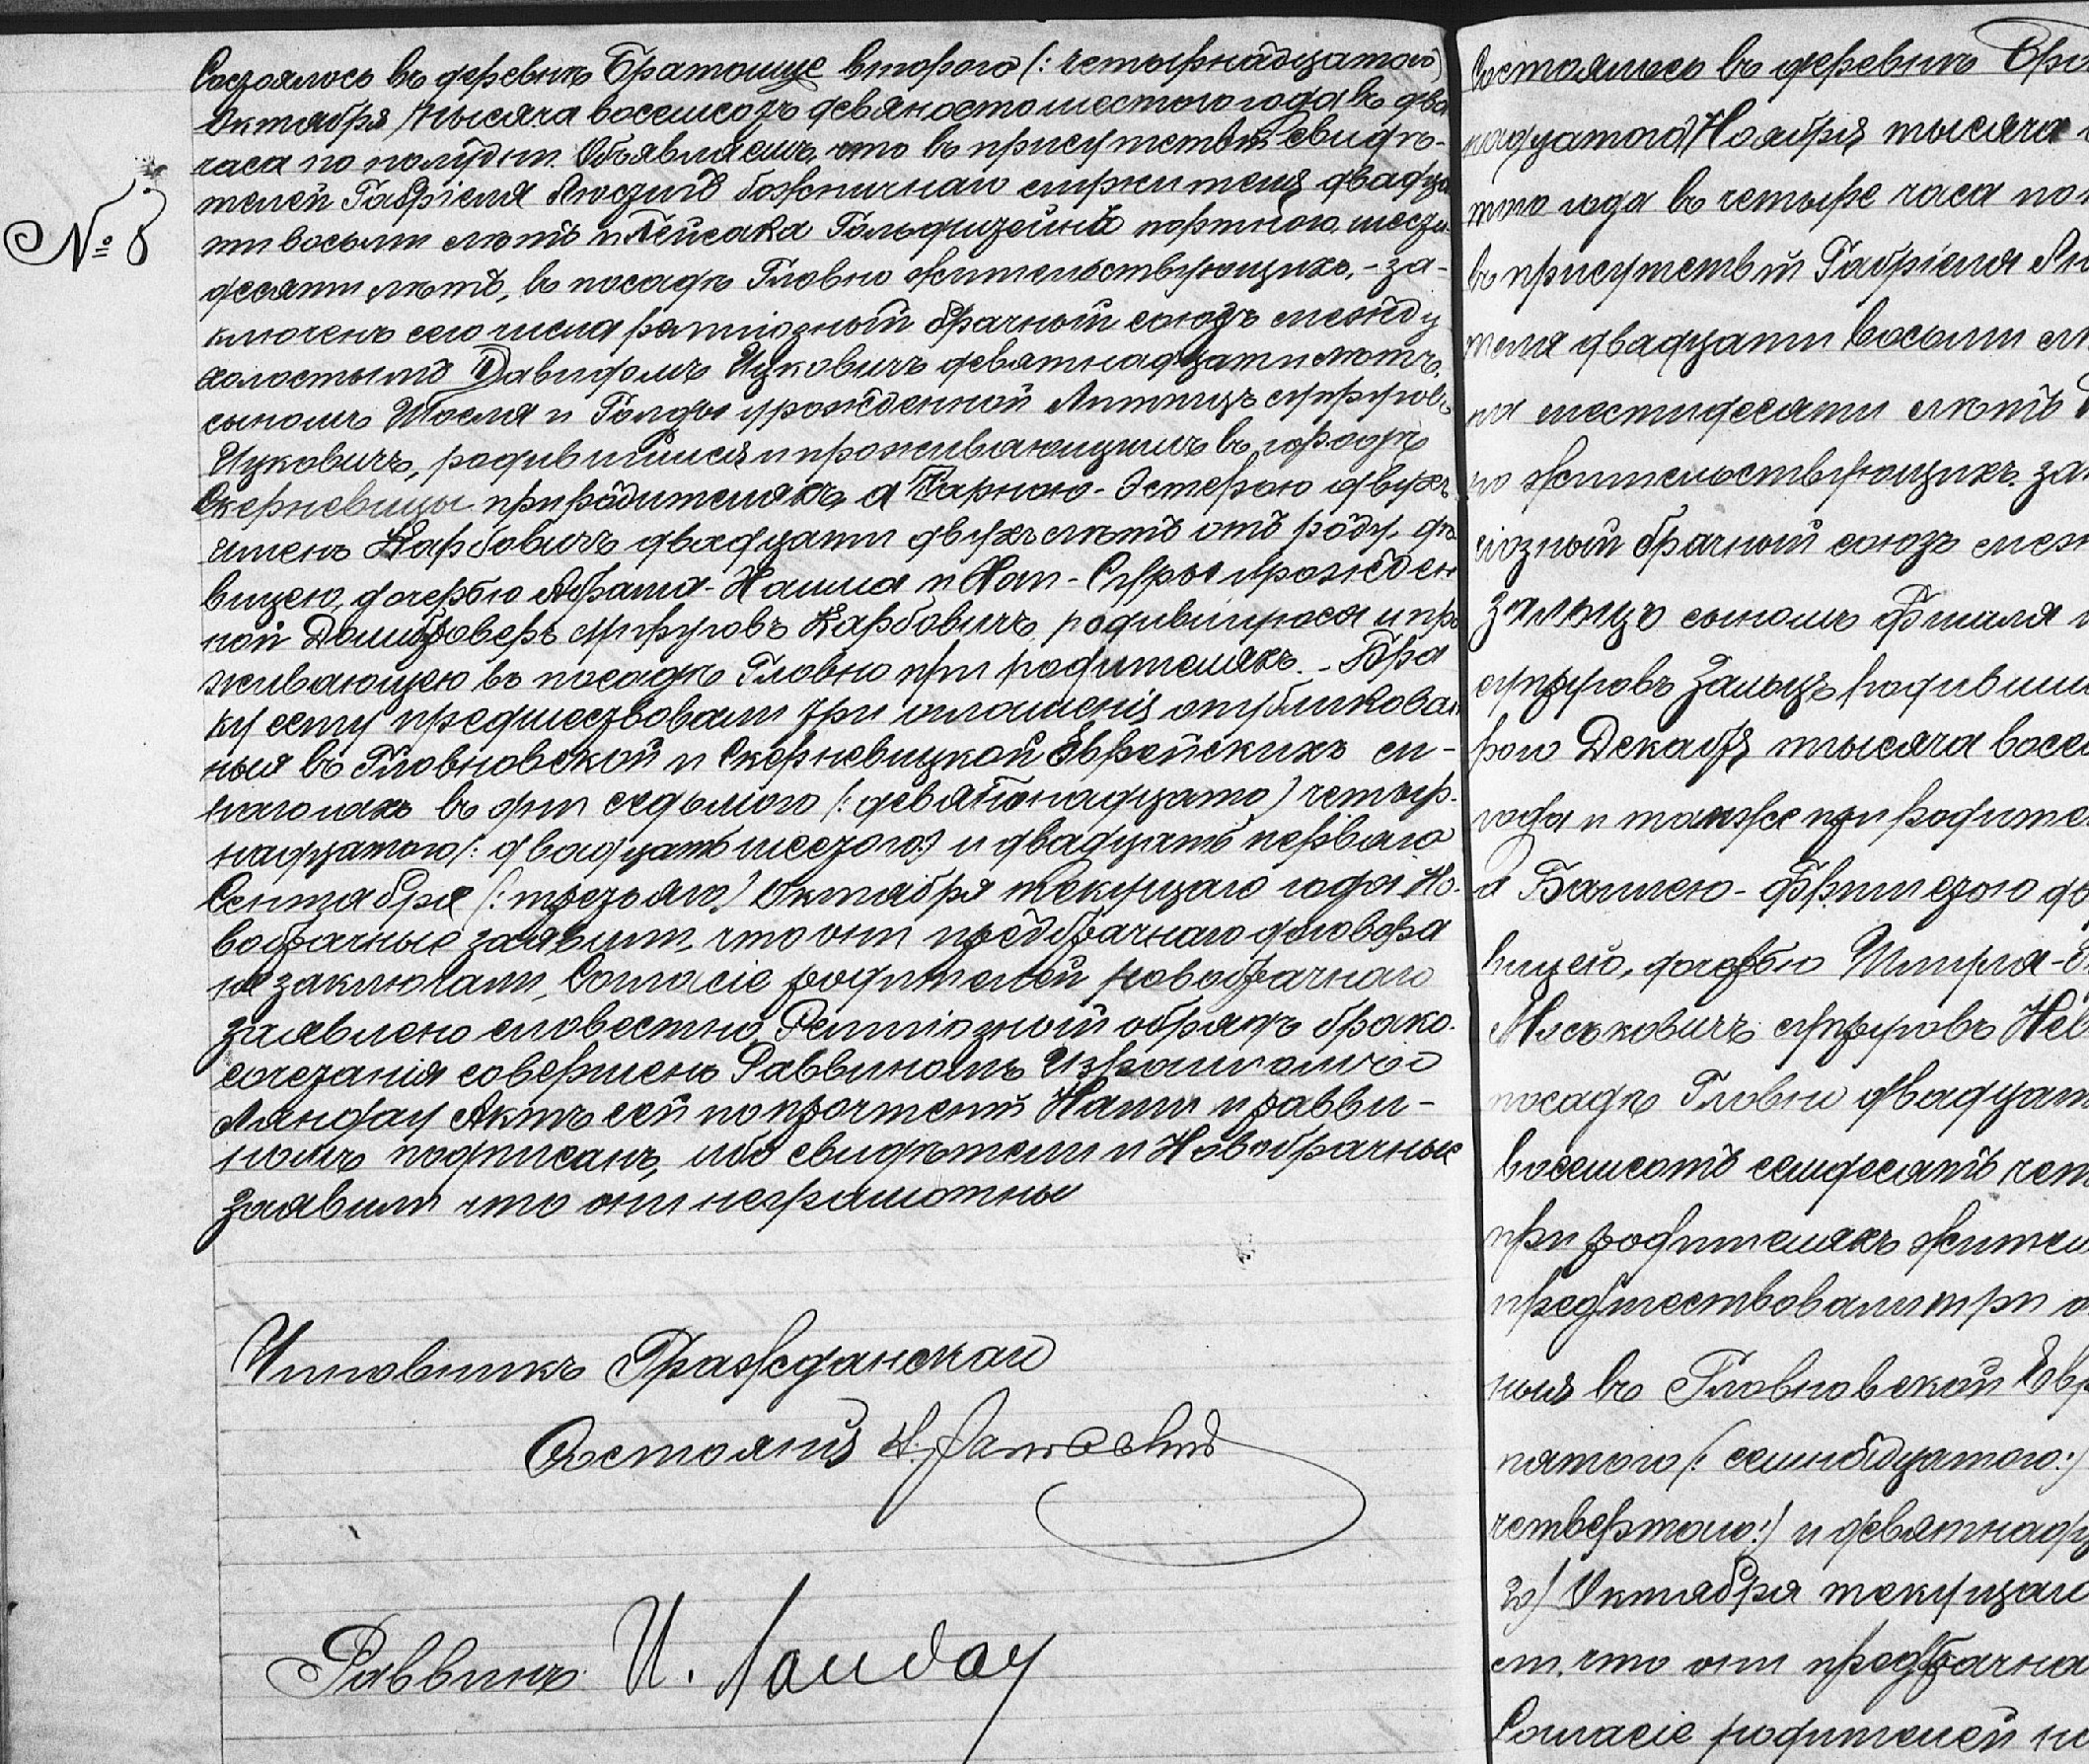 Состоялось въ деревнѣ Братошице второго (: четырнадцатого)
Октября тысяча восемсотъ девяностошестого года въ два
часа по полудни. Объявляемъ, что въ присутствіи свидѣ-
телей Габріеля божничнаго служителя двадца
ти восьми лѣтъ и Пейсака Гольдштейна портного шести-
десяти лѣтъ, въ посадѣ Гловно жительствующихъ, - за-
ключенъ сего числа религіозный брачный союзъ между
холостымъ Давидомъ Ицковичъ девятнадцати лѣтъ,
сыномъ Іосля и Голды урожденной супруговъ
Ицковичъ, родившимся и проживающимъ въ городѣ
Скерневицы при родителяхъ, а Чарною-Эстерою двухъ
именъ Карбовичъ двадцати двухъ лѣтъ отъ роду, дѣ
вицею, дочерью Абрама-Наина и Хаи-Суры урожден
ной супруговъ Карбовичъ, родившуюся и про
живающею въ посадѣ Гловно при родителяхъ. - Бра
ку сему предшествовали три оглашенія опубликован
ныя въ Гловновской и Скерневицкой Еврейскихъ си-
нагогахъ въ дни седьмого (: девятонадцато) четыр-
надцатого (: двадцать шестого) и двадцать перваго
Сентября (: третьяго) Октября текущаго года Но-
вобрачные заявили, что они предбрачнаго договора
не заключали, Согласіе родителей новобрачнаго
заявлено словестно, Религіозный обрядъ брако-
сочетанія совершенъ Раввиномъ Израилемъ
Ляндау Актъ сей по прочтеніи Нами и равви-
номъ подписанъ, ибо свидѣтели и Новобрачные
заявили что они неграмотны
№ 8
Чиновникъ Гражданскаго
Состоянія
Раввинъ И. Ландау
Состоялось въ деревнѣ Бра
надцатого) Ноября тысяча
того года въ четыре часа по
въ присутствіи Габріеля
теля двадцати восьми лѣ
на шестидесяти лѣтъ
но жительствующихъ за
гіозный брачный союзъ меж
Зальцъ сыномъ Фишля и
супруговъ Зальцъ родивши
рого Декабря тысяча восем
года и также при родите
а Байлею-Фриметою
вицею, дочерью Шмуля
Моськовичъ супруговъ
посадѣ Гловно двадцат
восемсотъ семдесятъ чет
при родителяхъ жител
предшествовали три о
ныя въ Гловновской Евр
пятого (: семнадцатого:)
четвертого:) и девятнадц
го) Октября текущаго
ли, что они предбрачна
Согласіе родителей но